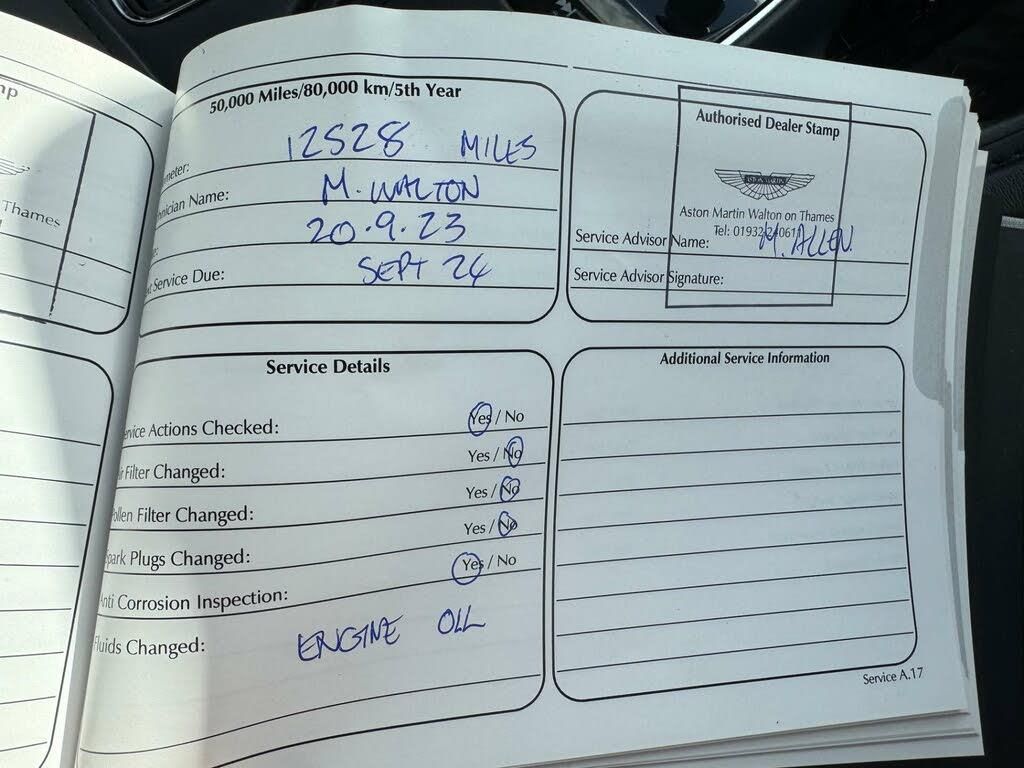 mp
Thames
50,000 Miles/80,000 km/5th Year
meter: 12528 MILES
hnician Name: M. WALTON
e: 20.9.23
t Service Due: SEPT 24
Authorised Dealer Stamp
ASTON MARTIN
Aston Martin Walton on Thames
Tel: 01932
Service Advisor Name: M. ALLEN.
Service Advisor Signature:
Service Details
rvice Actions Checked: Yes / No
ir Filter Changed: Yes / No
ollen Filter Changed: Yes / No
park Plugs Changed: Yes / No
nti Corrosion Inspection: Yes / No
luids Changed: ENGINE OIL
Additional Service Information
Service A.17